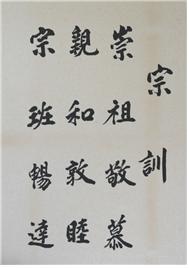 宗訓
崇祖敬慕
親和敦睦
宗班暢達